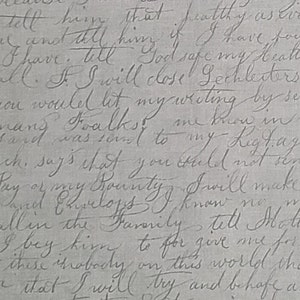 tell him that healthy as ever
and tell him if I have for
I have. tell God safe my healt
all. If I will close
you would let my writing by si
mang Foalks. me know in
and was send to my Regt ag
ck. says that you could not sen
Pay or my Bounty I will make
and Envelops I know no m
all in the Familly tell Moth
I beg him to for give me for
these nobody on this world tha
that I will try and behafe a